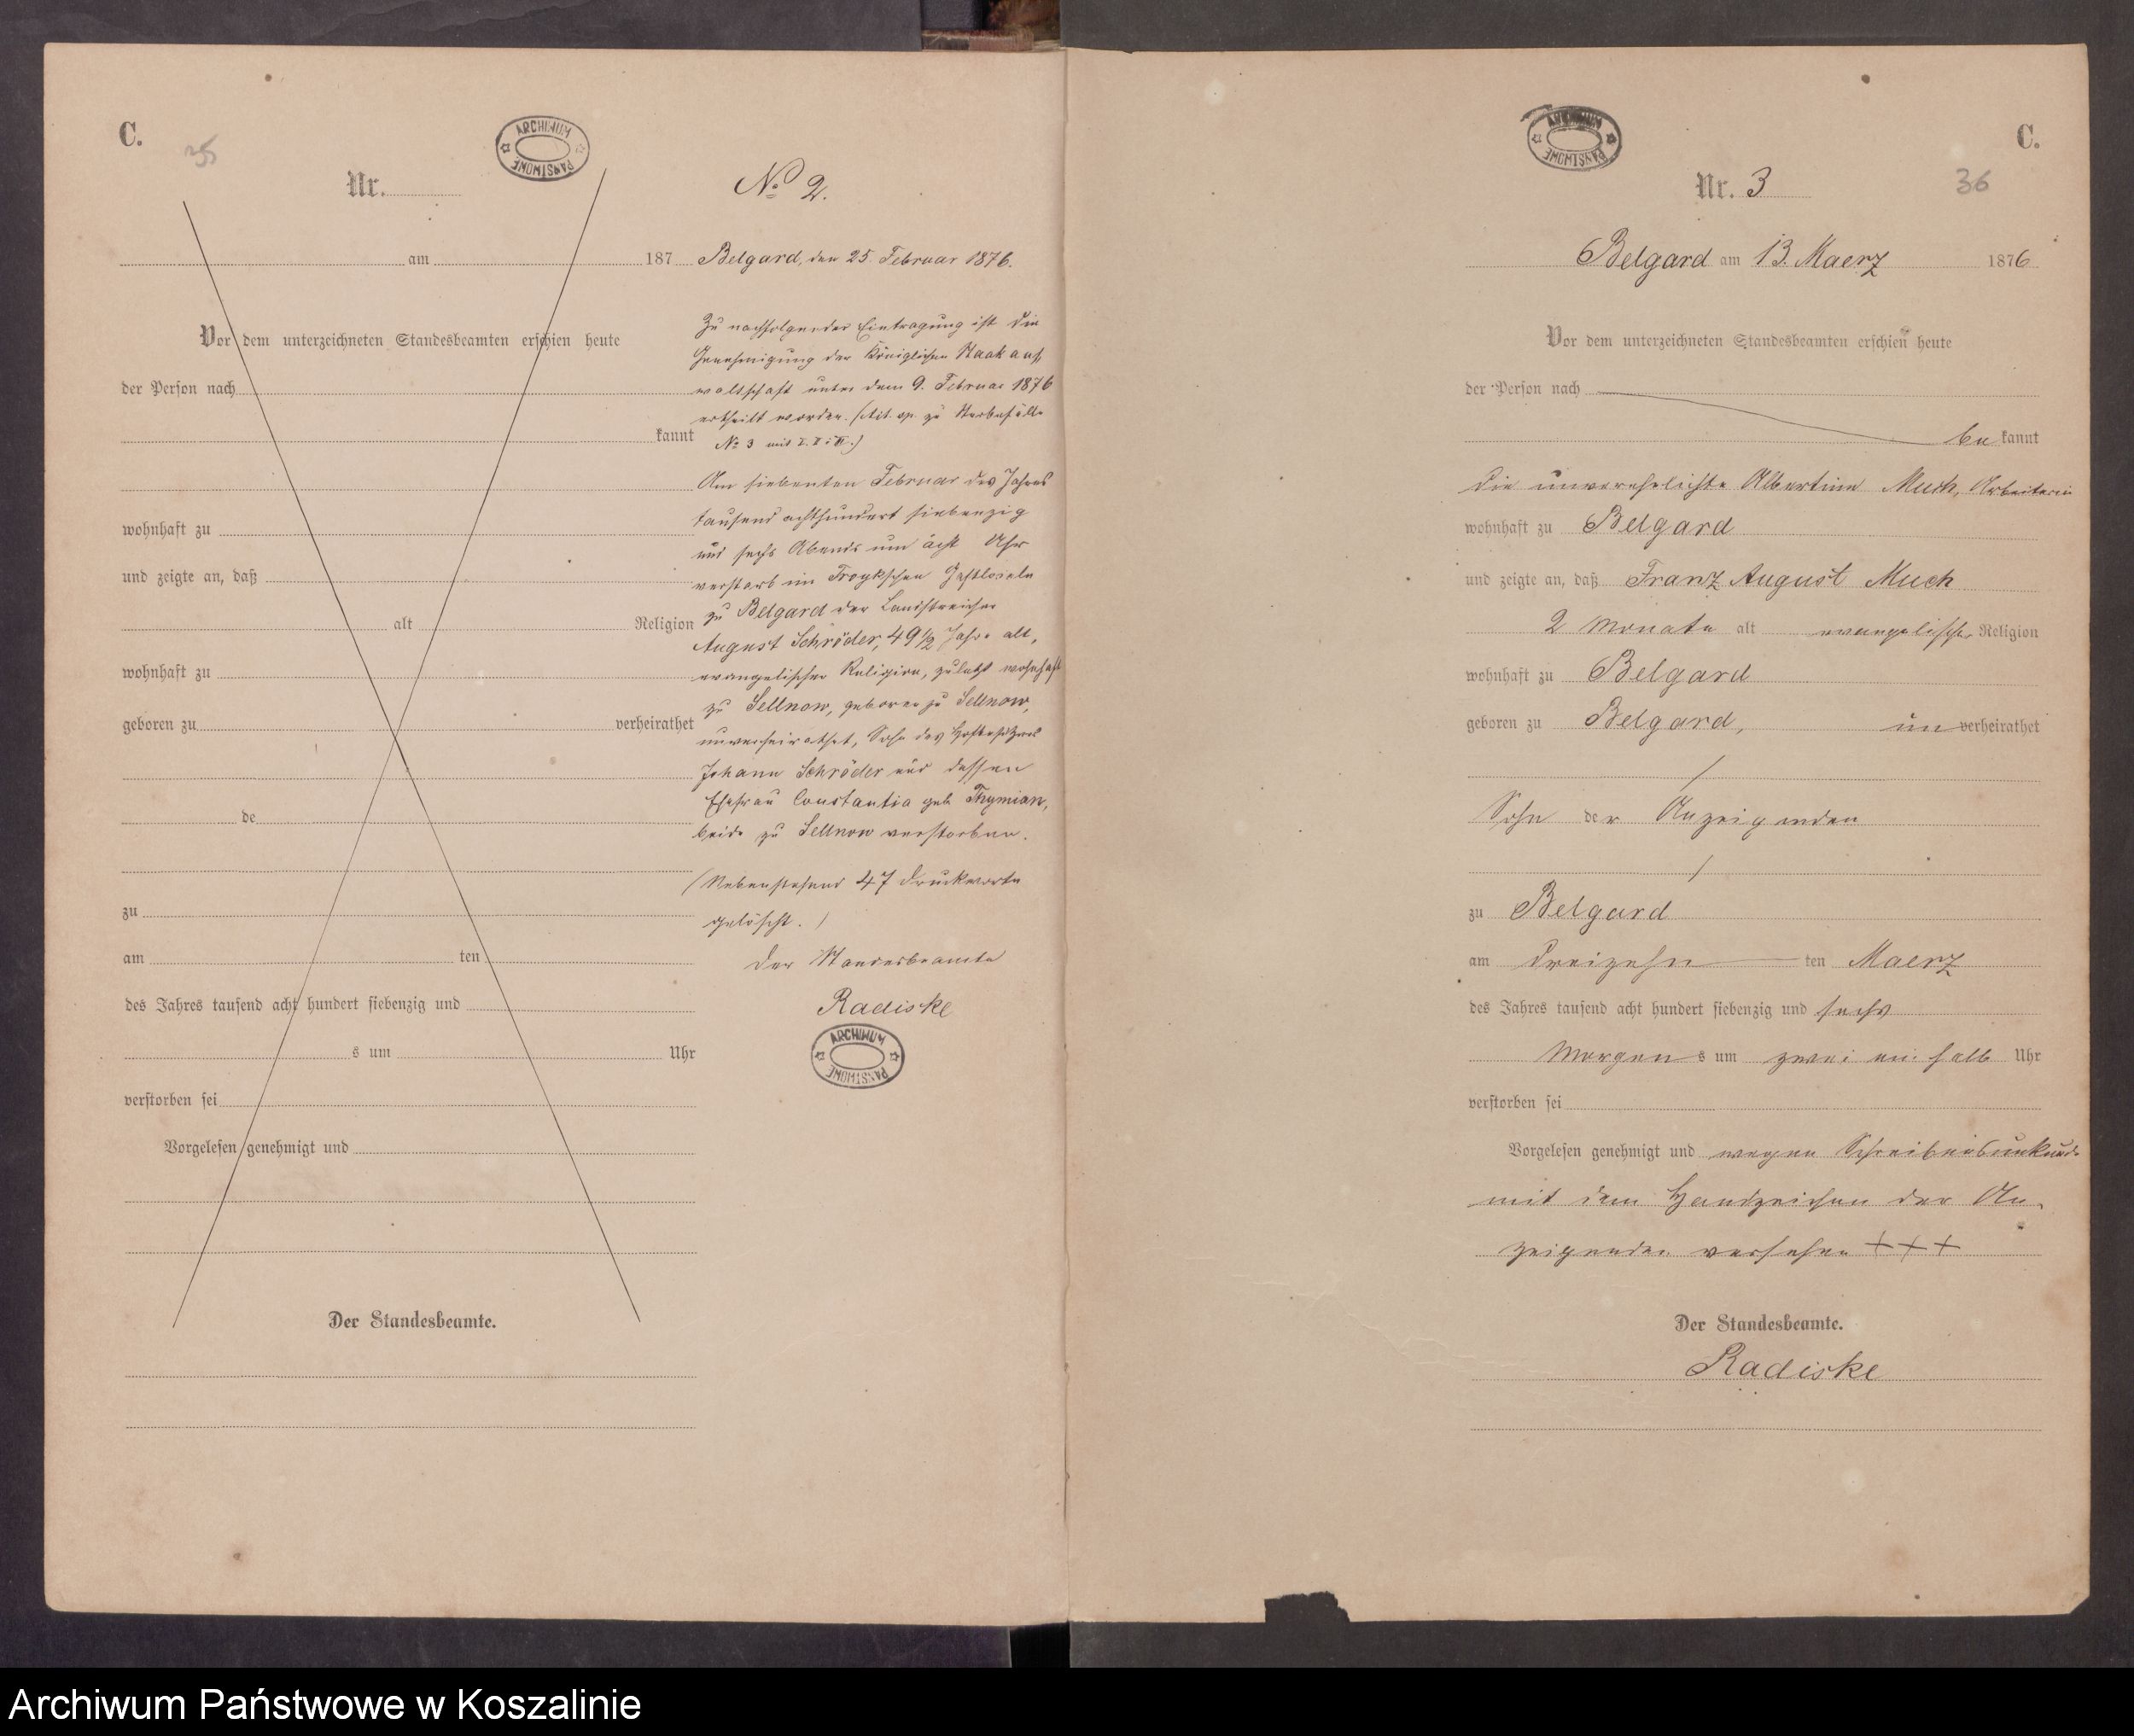 C.
35
ARCHIWUM PAŃSTWOWE
Nr.
am 187
Vor dem unterzeichneten Standesbeamten erschien heute
der Person nach
kannt
wohnhaft zu
und zeigte an, daß
alt Religion
wohnhaft zu
geboren zu verheirathet
de
zu
am ten
des Jahres tausend acht hundert siebenzig und
s um Uhr
verstorben sei
Vorgelesen genehmigt und
Der Standesbeamte.
No 2.
Belgard, den 25. Februar 1876.
Zu nachfolgender Eintragung ist die
Genehmigung der Königlichen Staatsan-
waltschaft unter dem 9. Februar 1876
ertheilt worden. zu Sterbefälle
No 3
Am siebenten Februar des Jahres
tausend achthundert siebenzig
und sechs Abends um acht Uhr
verstarb im
zu Belgard der Landstreicher
August Schröder, 49½ Jahre alt,
evangelischer Religion, zuletzt wohnhaft
zu Sellnow, geboren zu Sellnow,
unverheirathet, Sohn des
Johann Schröder und dessen
Ehefrau Constantia geb. Thymian,
beide zu Sellnow verstorben.
(Nebenstehend 47 Druckworte
gelöscht.)
Der Standesbeamte
Radiske
ARCHIWUM PAŃSTWOWE
ARCHIWUM PAŃSTWOWE
C.
Nr. 3
36
Belgard am 13. Maerz 1876
Vor dem unterzeichneten Standesbeamten erschien heute
der Person nach
be kannt
die unverehelichte Albertine Much, Arbeiterin
wohnhaft zu Belgard
und zeigte an, daß Franz August Much
2 Monate alt evangelischer Religion
wohnhaft zu Belgard
geboren zu Belgard, un verheirathet
/
Sohn der Anzeigenden
/
zu Belgard
am dreizehn ten Maerz
des Jahres tausend acht hundert siebenzig und sechs
Morgen s um zwei ein halb Uhr
verstorben sei
Vorgelesen genehmigt und wegen Schreibensunkunde
mit dem Handzeichen der An-
zeigenden versehen +++
Der Standesbeamte.
Radiske
Archiwum Państwowe w Koszalinie